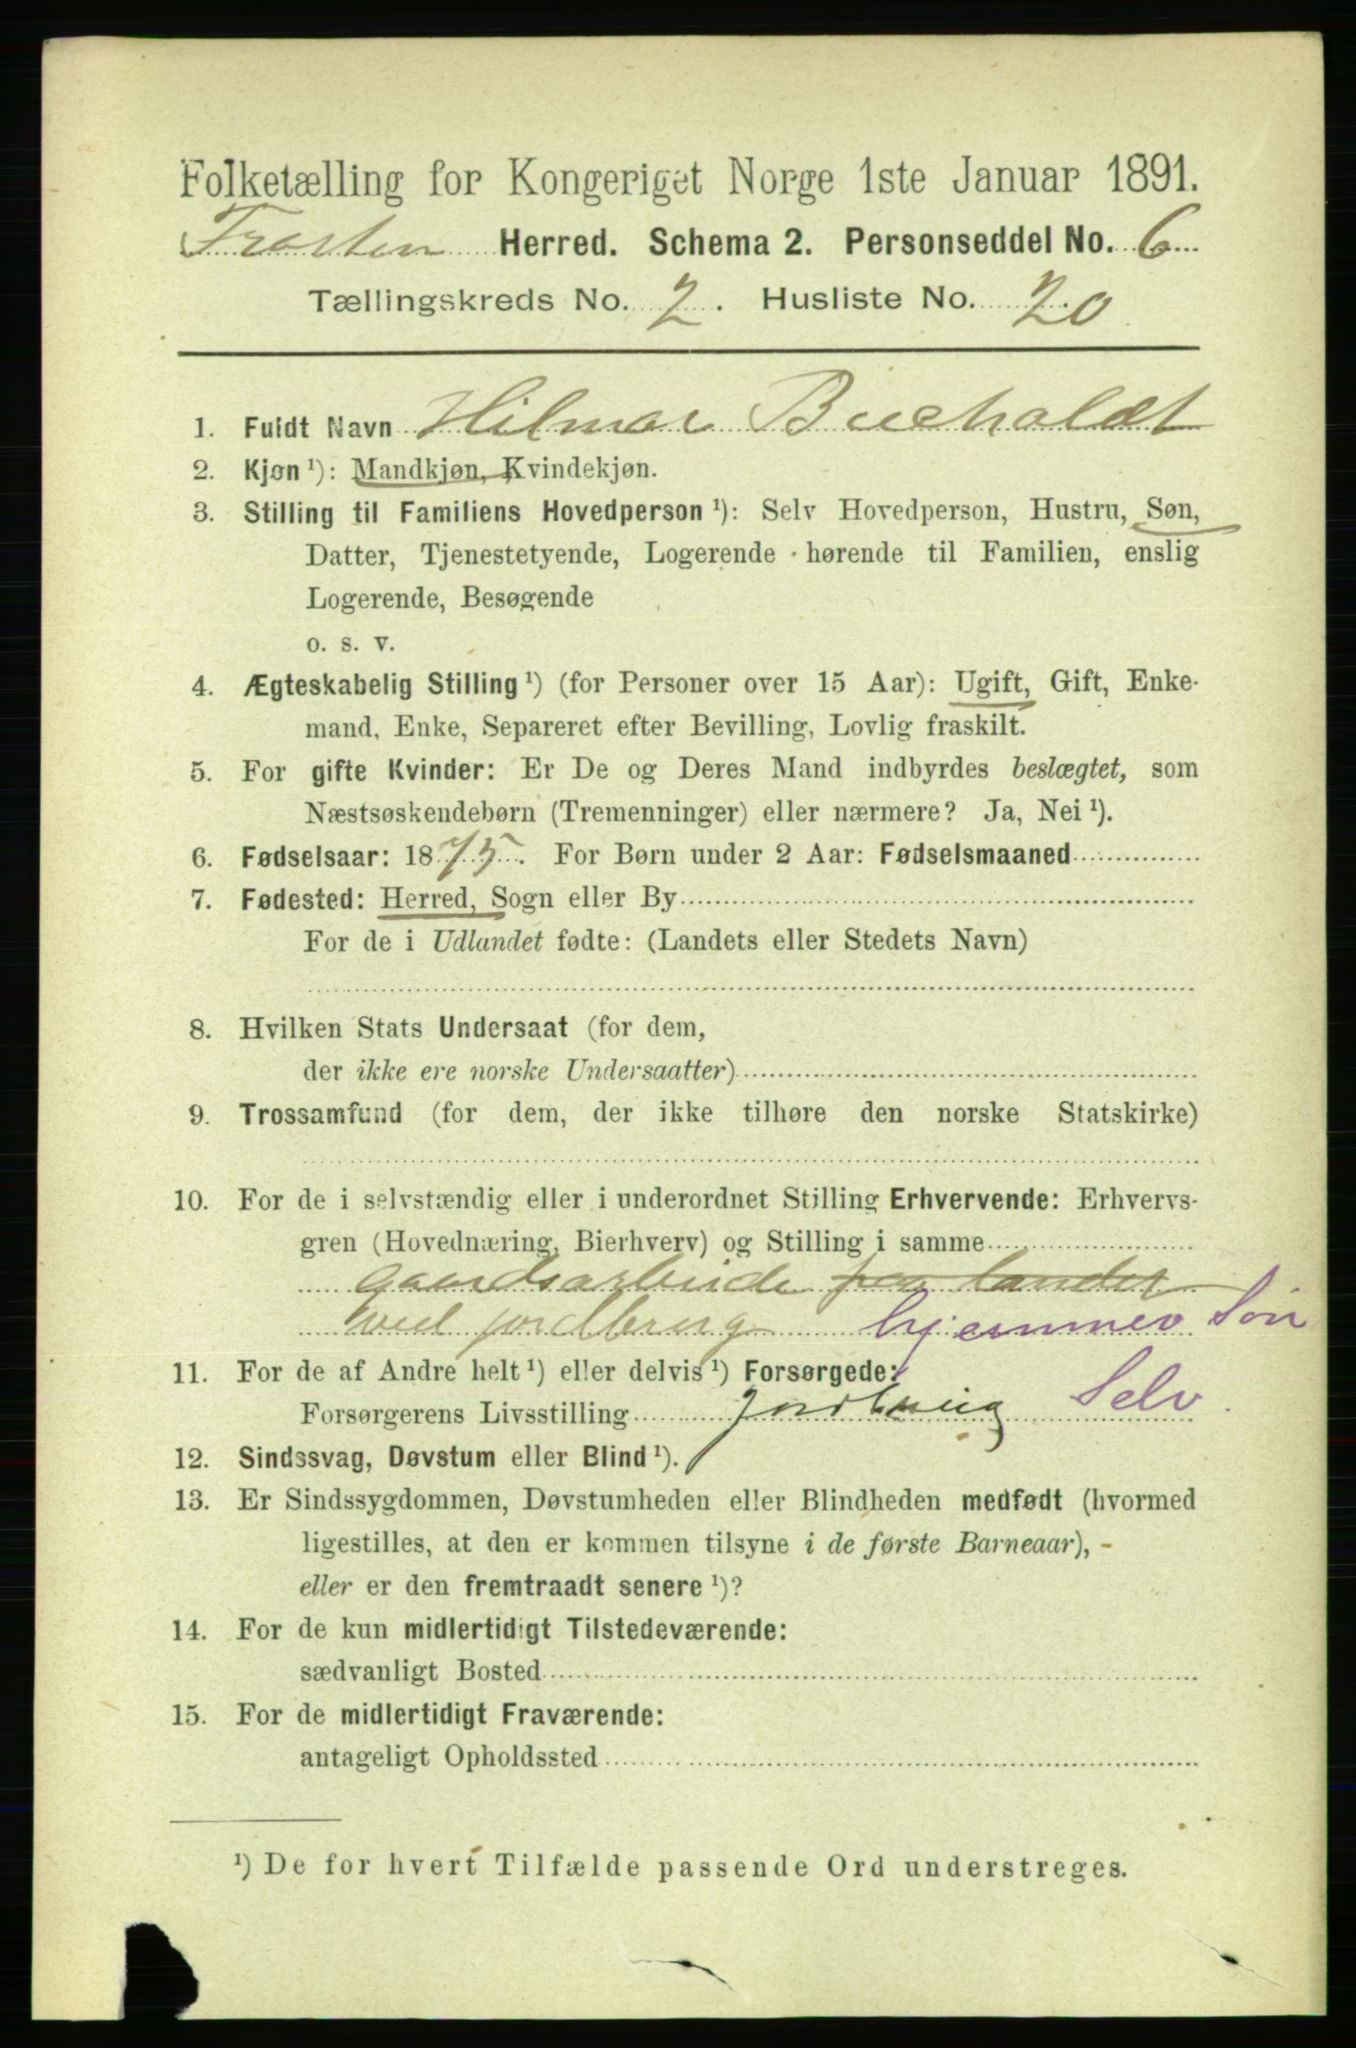 Folketælling for Kongeriget Norge 1ste Januar 1891.
Frosten Herred. Schema 2. Personseddel No. 6
Tællingskreds No. 2. Husliste No. 20
1. Fuldt Navn Hilmar Bucholdt
2. Kjøn ¹): Mandkjøn, Kvindekjøn.
3. Stilling til Familiens Hovedperson ¹): Selv Hovedperson, Hustru, Søn,
Datter, Tjenestetyende, Logerende hørende til Familien, enslig
Logerende, Besøgende
o. s. v.
4. Ægteskabelig Stilling ¹) (for Personer over 15 Aar): Ugift, Gift, Enke-
mand, Enke, Separeret efter Bevilling, Lovlig fraskilt.
5. For gifte Kvinder: Er De og Deres Mand indbyrdes beslægtet, som
Næstsøskendebørn (Tremenninger) eller nærmere? Ja, Nei ¹).
6. Fødselsaar: 1875. For Børn under 2 Aar: Fødselsmaaned
7. Fødested: Herred, Sogn eller By
For de i Udlandet fødte: (Landets eller Stedets Navn)
8. Hvilken Stats Undersaat (for dem,
der ikke ere norske Undersaatter)
9. Trossamfund (for dem, der ikke tilhøre den norske Statskirke)
10. For de i selvstændig eller i underordnet Stilling Erhvervende: Erhvervs-
gren (Hovednæring, Bierhverv) og Stilling i samme
gaardsarbeide paa landet
ved jordbrug hjemmev Søn
11. For de af Andre helt ¹) eller delvis ¹) Forsørgede:
Forsørgerens Livsstilling Jordbrug Selv
12. Sindssvag, Døvstum eller Blind ¹).
13. Er Sindssygdommen, Døvstumheden eller Blindheden medfødt (hvormed
ligestilles, at den er kommen tilsyne i de første Barneaar),
eller er den fremtraadt senere ¹)?
14. For de kun midlertidigt Tilstedeværende:
sædvanligt Bosted
15. For de midlertidigt Fraværende:
antageligt Opholdssted
¹) De for hvert Tilfælde passende Ord understreges.